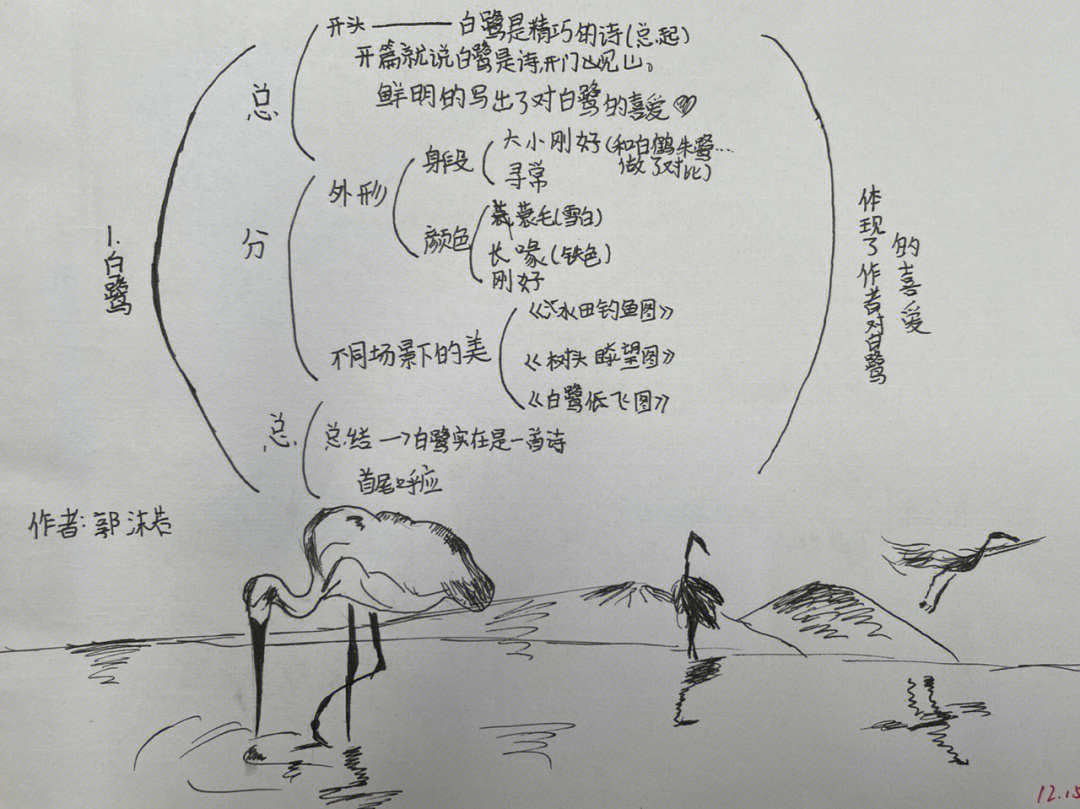 1.白鹭
总
开头——白鹭是精巧的诗(总起)
开篇就说白鹭是诗,开门见山。
鲜明的写出了对白鹭的喜爱
分
外形
身段
大小刚好(和白鹤朱鹭…做了对比)
寻常
颜色
蓑毛(雪白)
长喙(铁色)
刚好
不同场景下的美
《水田钓鱼图》
《树头眺望图》
《白鹭低飞图》
总
总结→白鹭实在是一首诗
首尾呼应
体现了作者对白鹭
的喜爱
作者:郭沫若
12.15